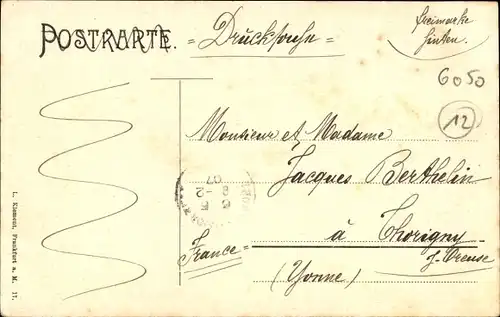 POSTKARTE.
= Drucksache =
Freimarke
hinten.
6050
12
Monsieur et Madame
Jacques Berthelin
à Thorigny
s/ Oreuse
France
(Yonne)
L. Klement, Frankfurt a. M. 17.